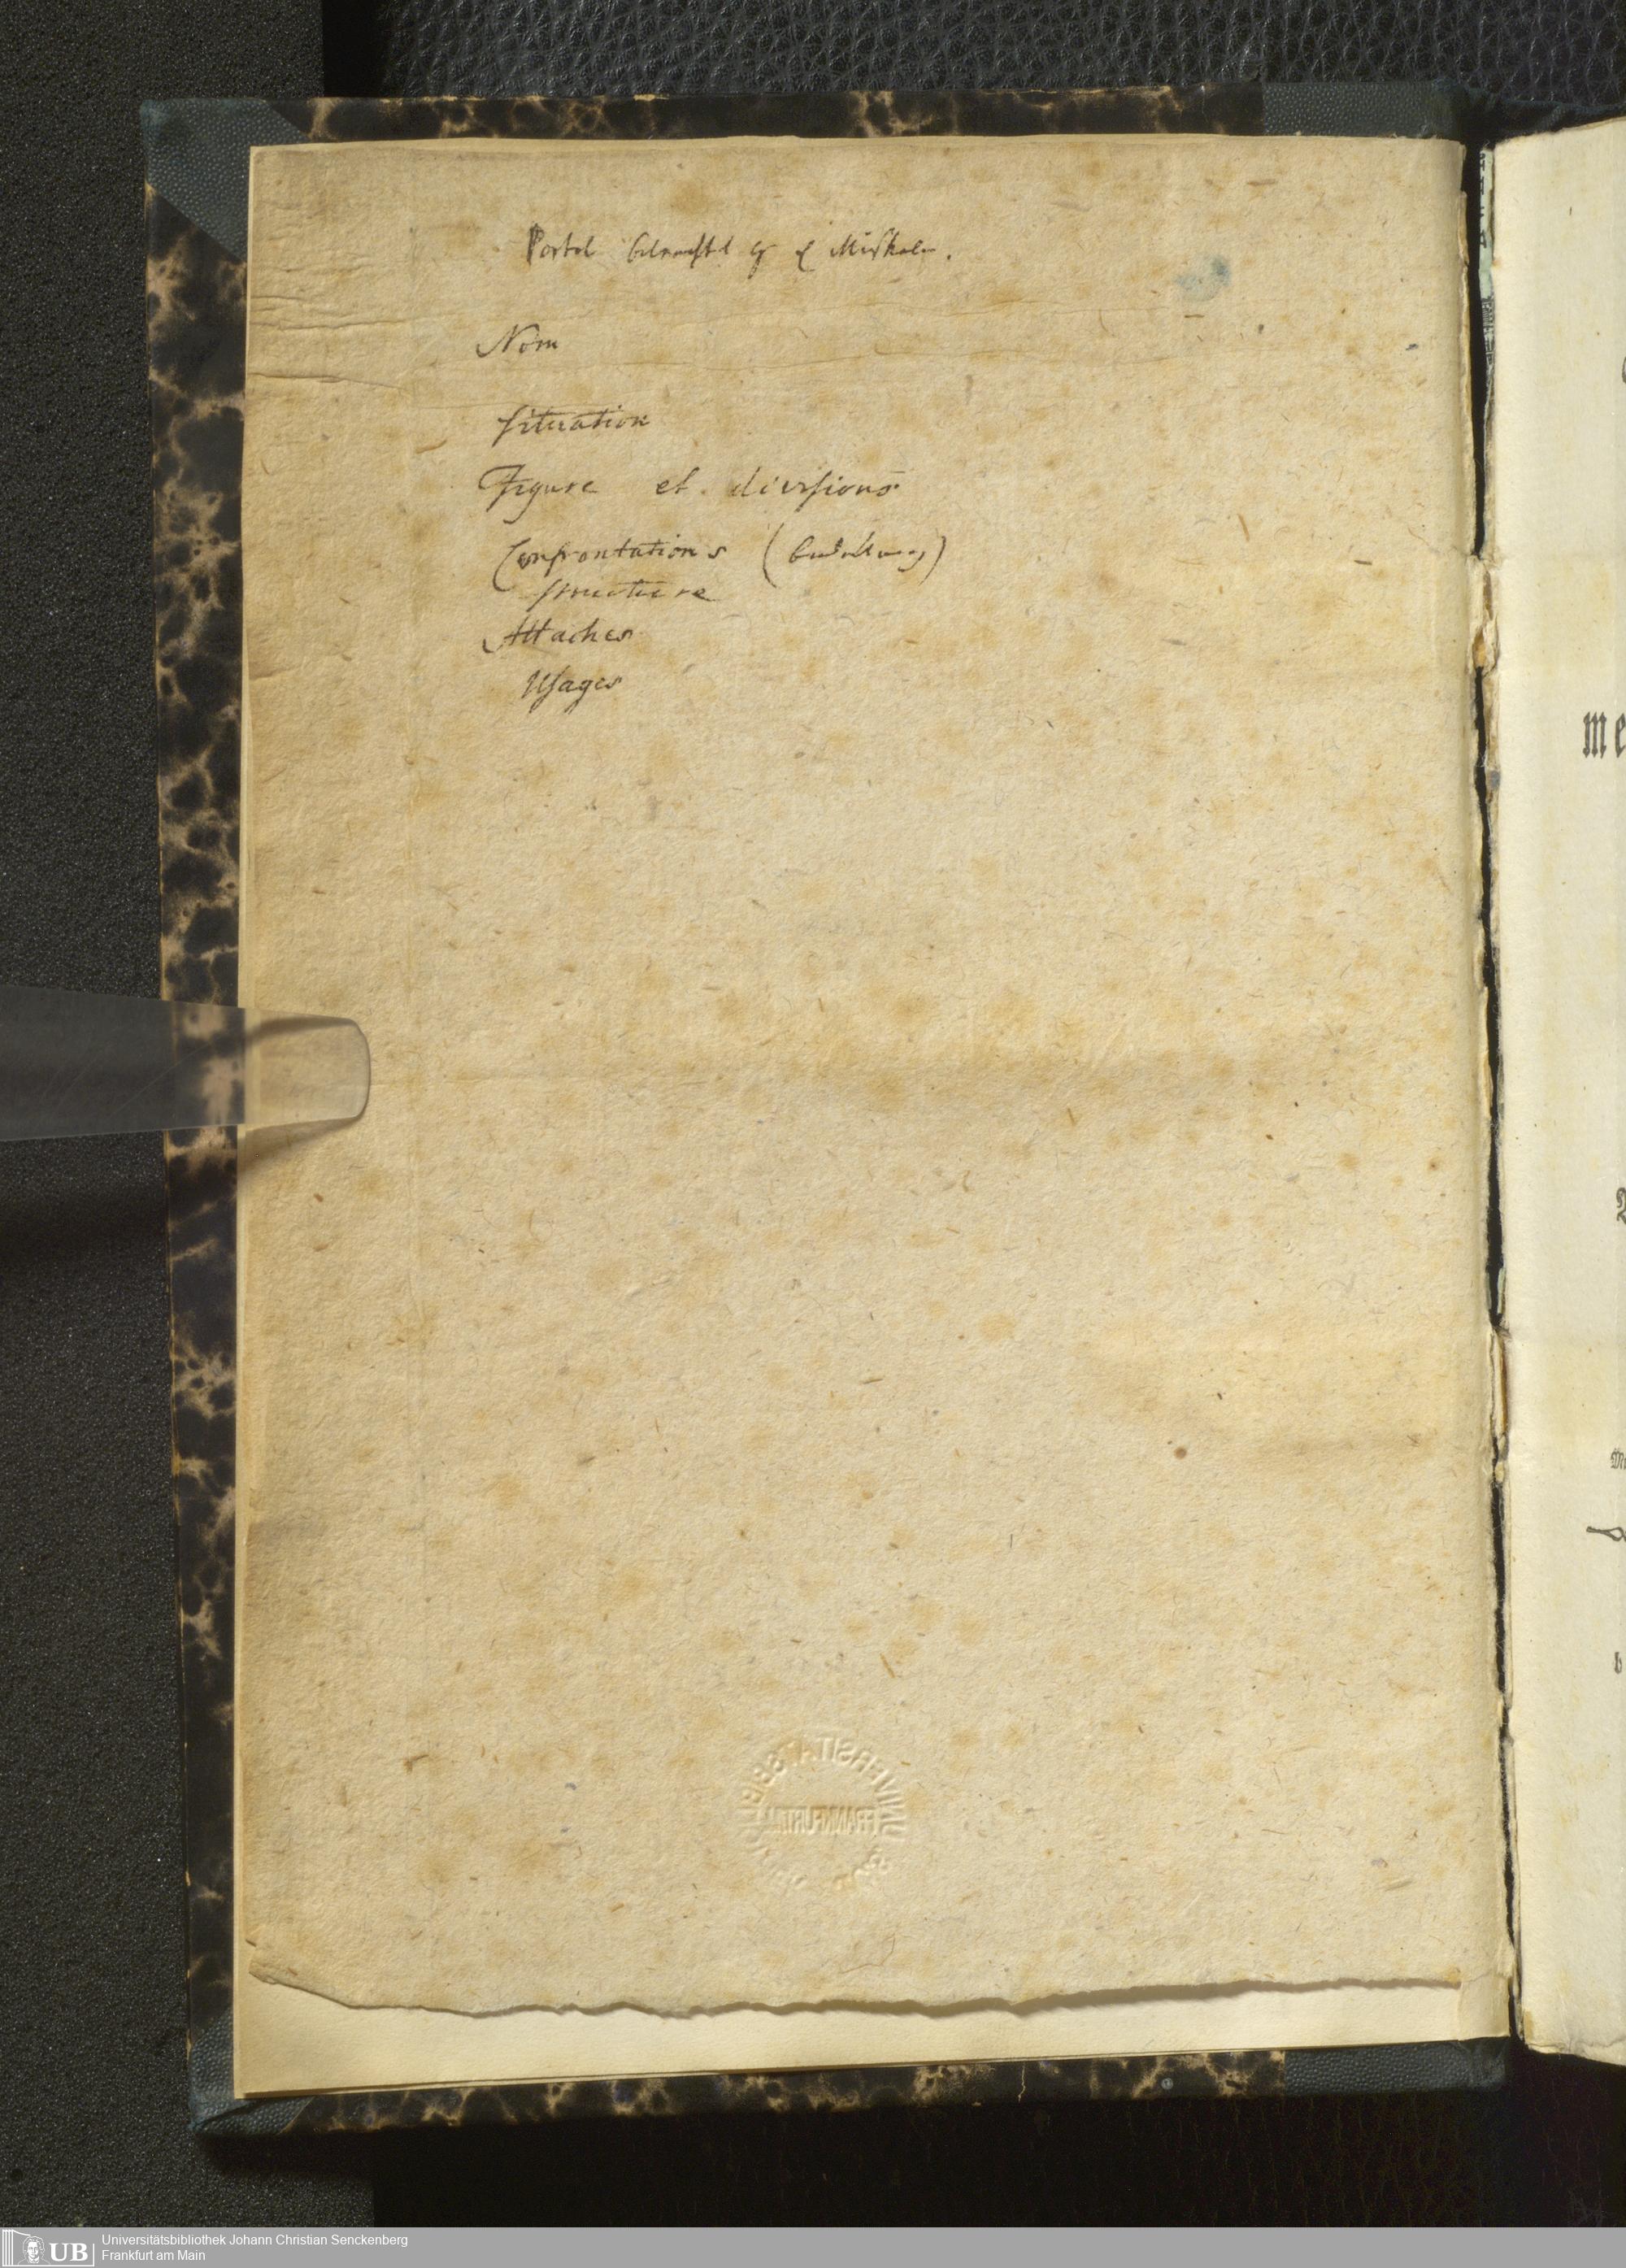 Portal betrachtet Muskeln.
Nom
Situation
Figure et divisions
Confrontations
Structure
Attaches
Usages
UNIVERSITÄTSBIBL
FRANKFURT
me
UB
Universitätsbibliothek Johann Christian Senckenberg
Frankfurt am Main